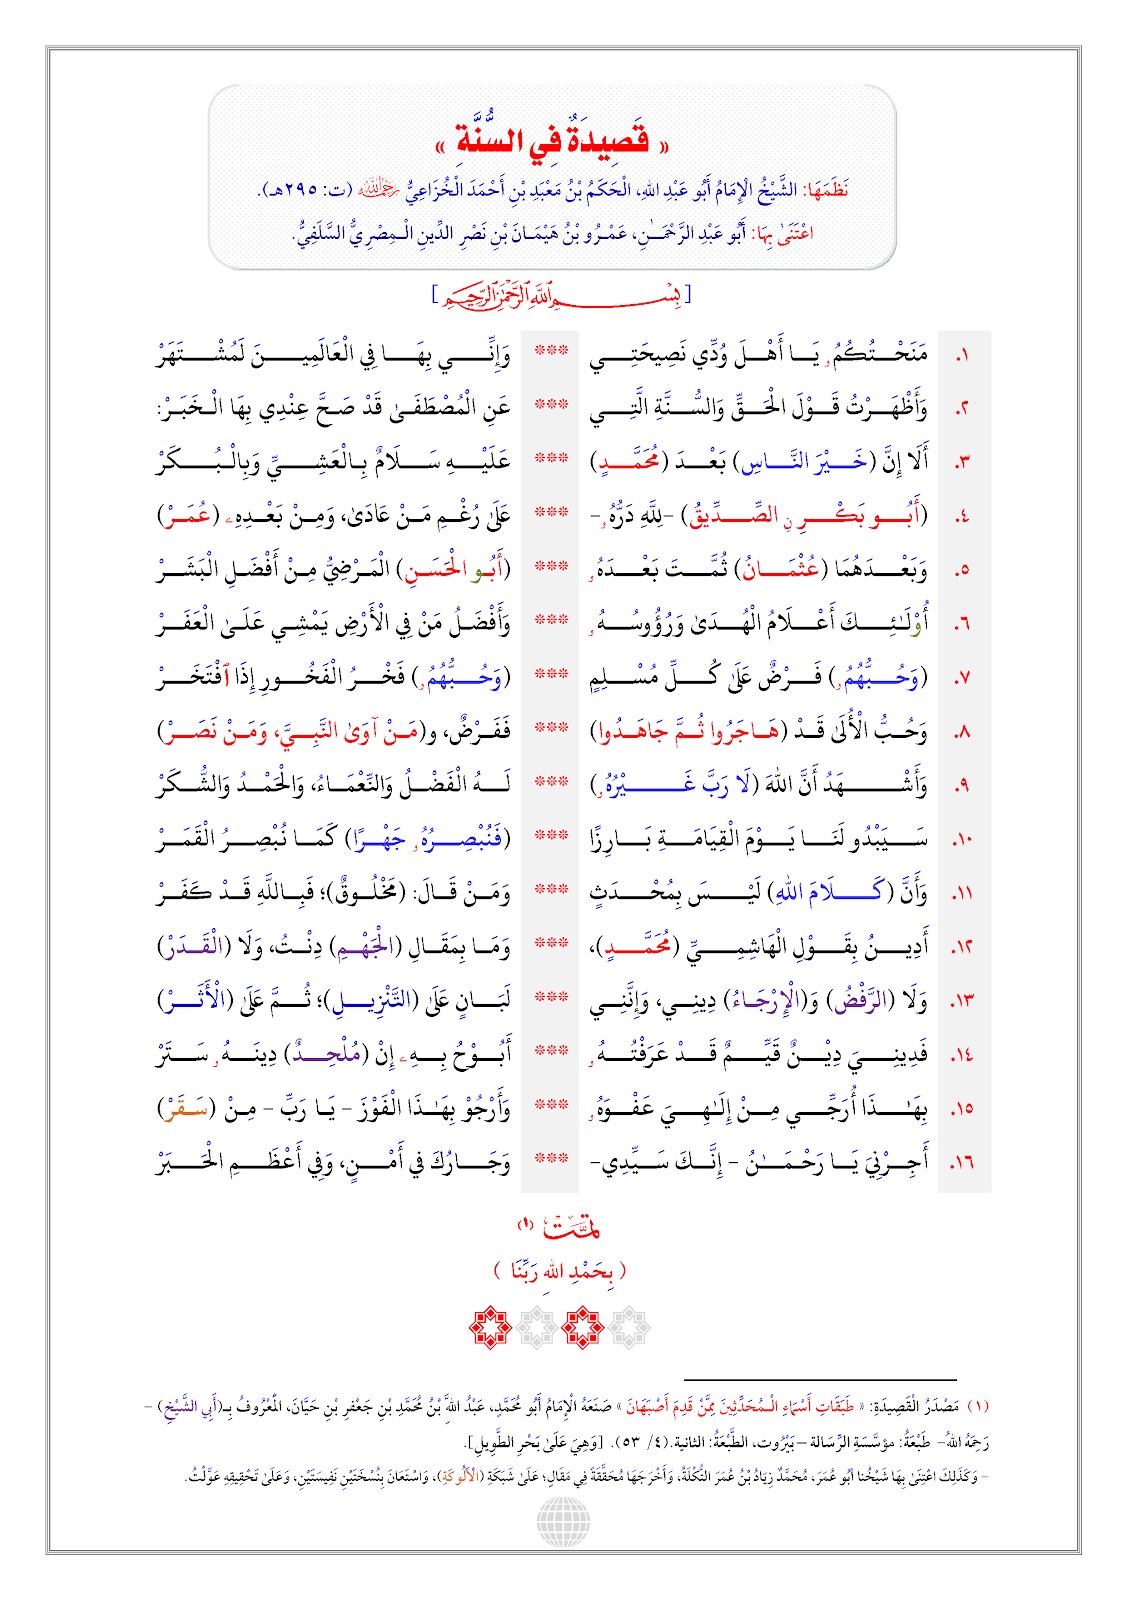 « قَصِيدَةٌ فِي السُّنَّةِ »
نَظَمَهَا: الشَّيْخُ الْإِمَامُ أَبُو عَبْدِ اللهِ، الْحَكَمُ بْنُ مَعْبَدِ بْنِ أَحْمَدَ الْخُزَاعِيُّ رَحِمَهُ اللهُ (ت: ٢٩٥هـ).
اعْتَنَىٰ بِهَا: أَبُو عَبْدِ الرَّحْمَـٰنِ، عَمْرُو بْنُ هَيْمَانَ بْنِ نَصْرِ الدِّينِ الْمِصْرِيُّ السَّلَفِيُّ.
[بِسْمِ اللَّهِ الرَّحْمَٰنِ الرَّحِيمِ]
١. مَنَحْتُكُمُۥ يَا أَهْلَ وُدِّي نَصِيحَتِي *** وَإِنِّي بِهَا فِي الْعَالَمِينَ لَمُشْتَهَرْ
٢. وَأَظْهَرْتُ قَوْلَ الْحَقِّ وَالسُّنَّةِ الَّتِي *** عَنِ الْمُصْطَفَىٰ قَدْ صَحَّ عِنْدِي بِهَا الْخَبَرْ:
٣. أَلَا إِنَّ (خَيْرَ النَّاسِ) بَعْدَ (مُحَمَّدٍ) *** عَلَيْهِ سَلَامٌ بِالْعَشِيِّ وَبِالْبُكَرْ
٤. (أَبُو بَكْرِ نِ الصِّدِّيقُ) -لِلَّهِ دَرُّهُۥ- *** عَلَىٰ رُغْمِ مَنْ عَادَىٰ، وَمِنْ بَعْدِهِۦ (عُمَرْ)
٥. وَبَعْدَهُمَا (عُثْمَانُ) ثُمَّتَ بَعْدَهُۥ *** (أَبُو الْحَسَنِ) الْمَرْضِيُّ مِنْ أَفْضَلِ الْبَشَرْ
٦. أُوْلَـٰئِكَ أَعْلَامُ الْهُدَىٰ وَرُؤُوسُهُۥ *** وَأَفْضَلُ مَنْ فِي الْأَرْضِ يَمْشِي عَلَىٰ الْعَفَرْ
٧. (وَحُبُّهُمُۥ) فَرْضٌ عَلَىٰ كُلِّ مُسْلِمٍ *** (وَحُبُّهُمُۥ) فَخْرُ الْفَخُورِ إِذَا ٱفْتَخَرْ
٨. وَحُبُّ الْأُلَىٰ قَدْ (هَاجَرُوا ثُمَّ جَاهَدُوا) *** فَفَرْضٌ، و(مَنْ آوَىٰ النَّبِيَّ، وَمَنْ نَصَرْ)
٩. وَأَشْهَدُ أَنَّ اللهَ (لَا رَبَّ غَيْرُهُۥ) *** لَهُ الْفَضْلُ وَالنِّعْمَاءُ، وَالْحَمْدُ وَالشُّكَرْ
١٠. سَيَبْدُو لَنَا يَوْمَ الْقِيَامَةِ بَارِزًا *** (فَنُبْصِرُهُۥ جَهْرًا) كَمَا نُبْصِرُ الْقَمَرْ
١١. وَأَنَّ (كَلَامَ اللهِ) لَيْسَ بِمُحْدَثٍ *** وَمَنْ قَالَ: (مَخْلُوقٌ)؛ فَبِاللَّهِ قَدْ كَفَرْ
١٢. أَدِينُ بِقَوْلِ الْهَاشِمِيِّ (مُحَمَّدٍ)، *** وَمَا بِمَقَالِ (الْجَهْمِ) دِنْتُ، وَلَا (الْقَدَرْ)
١٣. وَلَا (الرَّفْضُ) وَ(الْإِرْجَاءُ) دِينِي، وَإِنَّنِي *** لَبَانٍ عَلَىٰ (التَّنْزِيلِ)؛ ثُمَّ عَلَىٰ (الْأَثَرْ)
١٤. فَدِينِيَ دِيْنٌ قَيِّمٌ قَدْ عَرَفْتُهُۥ *** أَبُوْحُ بِهِۦ إِنْ (مُلْحِدٌ) دِينَهُۥ سَتَرْ
١٥. بِهَـٰذَا أُرَجِّي مِنْ إِلَـٰهِيَ عَفْوَهُۥ *** وَأَرْجُوْ بِهَـٰذَا الْفَوْزَ - يَا رَبِّ - مِنْ (سَقَرْ)
١٦. أَجِرْنِيَ يَا رَحْمَـٰنُ - إِنَّكَ سَيِّدِي- *** وَجَارُكَ فِي أَمْنٍ، وَفِي أَعْظَمِ الْحَبَرْ
تَمَّتْ (١)
( بِحَمْدِ اللهِ رَبِّنَا )
(١) مَصْدَرُ الْقَصِيدَةِ: « طَبَقَاتِ أَسْمَاءِ الْمُحَدِّثِينَ مِمَّنْ قَدِمَ أَصْبَهَانَ » صَنَعَهُ الْإِمَامُ أَبُو مُحَمَّدٍ، عَبْدُ اللهِ بْنُ مُحَمَّدِ بْنِ جَعْفَرِ بْنِ حَيَّانَ، الْمَعْرُوفُ بِـ(أَبِي الشَّيْخِ) –
رَحِمَهُ اللهُ- طَبْعَةُ: مؤسَّسَةِ الرِّسَالة – بَيْرُوت، الطَّبْعَةُ: الثانية.(٤/ ٥٣). [وَهِيَ عَلَىٰ بَحْرِ الطَّوِيلِ].
– وَكَذَلِكَ اعْتَنَىٰ بِهَا شَيْخُنا أبُو عُمَرَ، مُحَمَّدْ زِيَادُ بْنُ عُمَرَ التُّكْلَةُ، وَأَخْرَجَهَا مُحَقَّقَةً فِي مَقَالٍ؛ عَلَىٰ شَبَكَةِ (الْأَلُوكَةِ)، وَاسْتَعَانَ بِنُسْخَتَيْنِ نَفِيسَتَيْنِ، وَعَلَىٰ تَحْقِيقِهِ عَوَّلْتُ.